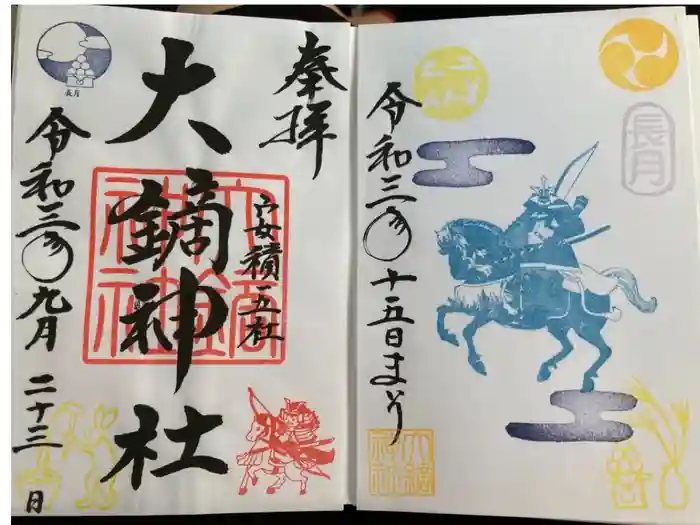 奉拝
安積五社
大鏑神社
令和三年九月二十三日
長月
大鏑神社
長月
令和三年十五日まいり
大鏑神社